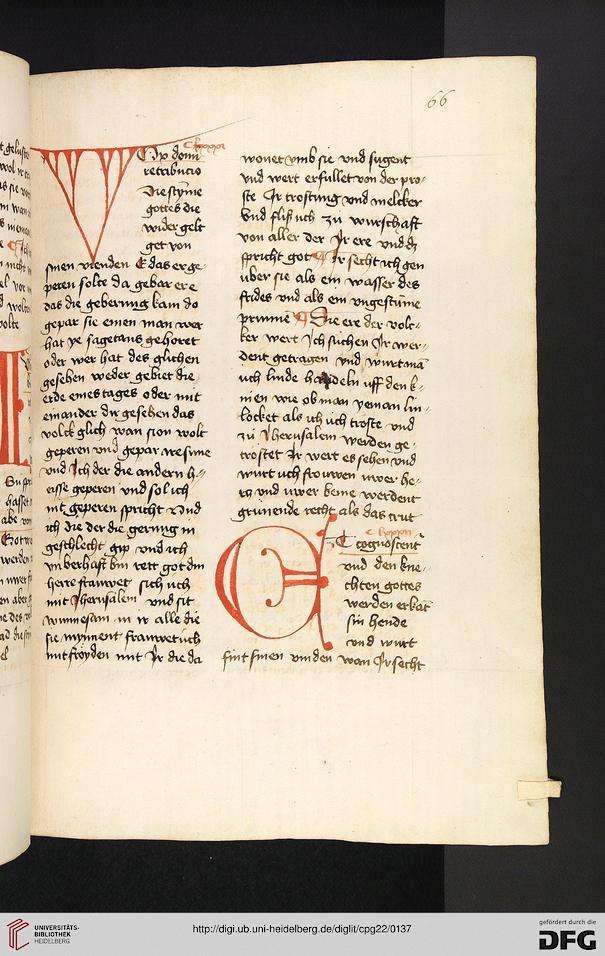 66
Ox domi
retribucio
Die stÿme
gottes die
wider gelt
get von
sinen vienden E das er ge-
peren solte da gebar er e
das die geberung kam do
gepar sie einen man wer
hat ye sagetans gehoret
oder wer hat des glichen
gesehen weder gebiet die
erde eines tages oder mit
einander die gesehen das
volck glich wan sion wolt
geperen vnd gepar ir sune
vnd Ich der die andern h-
eisse geperen vnd sol ich
nit geperen spricht vnd
ich die der die gerung in
geschlecht gip vnd ich
vnberhaft bin rett got din
herre frauwet sich uch
mit Jherusalem vnd sit
wunnesam in ir alle die
sie mynnent frauwet uch
mit froyden mit Jr die da
wonet vmb sie vnd sugent
vnd wert erfullet von der pro-
ste Ir trostung vnd melcker
vnd flisz uch zu wurschaft
von aller der Jr ere vnd dz
spricht got Ir secht ich gen
vber sie als ein wasser des
frides vnd als ein vngestume
prunne Die ere der volc-
ker wert Ich suchen Ir wer-
dent getragen vnd wurt man
uch linde handeln uff den k-
nien wie ob man yeman lin-
locket als ich uch troste vnd
zu Jherusalem werden ge-
trostet Ir wert es sehen vnd
wirt uch frouwen uwer he-
rtz vnd uwer beine werdent
grunende recht als das crut
T cognoscent
vnd den kne-
chten gottes
werden erkat
sin hende
vnd wurt
sint sinen vinden wan Ir secht
UNIVERSITÄTS-
BIBLIOTHEK
HEIDELBERG
http://digi.ub.uni-heidelberg.de/diglit/cpg22/0137
gefördert durch die
DFG